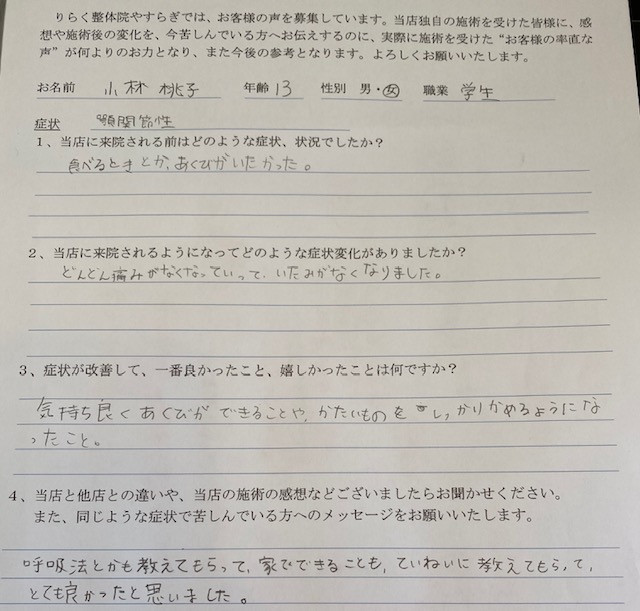 りらく整体院やすらぎでは、お客様の声を募集しています。当店独自の施術を受けた皆様に、感
想や施術後の変化を、今苦しんでいる方へお伝えするのに、実際に施術を受けた“お客様の率直な
声”が何よりのお力となり、また今後の参考となります。よろしくお願いいたします。
お名前 小林 桃子 年齢 13 性別 男・女 職業 学生
症状 顎関節性
1、当店に来院される前はどのような症状、状況でしたか？
食べるときとか、あくびがいたかった。
2、当店に来院されるようになってどのような症状変化がありましたか？
どんどん痛みがなくなっていって、いたみがなくなりました。
3、症状が改善して、一番良かったこと、嬉しかったことは何ですか？
気持ち良くあくびができることや、かたいものをしっかりかめるようにな
ったこと。
4、当店と他店との違いや、当店の施術の感想などございましたらお聞かせください。
また、同じような症状で苦しんでいる方へのメッセージをお願いいたします。
呼吸法とかも教えてもらって、家でできることも、ていねいに教えてもらって、
とても良かったと思いました。